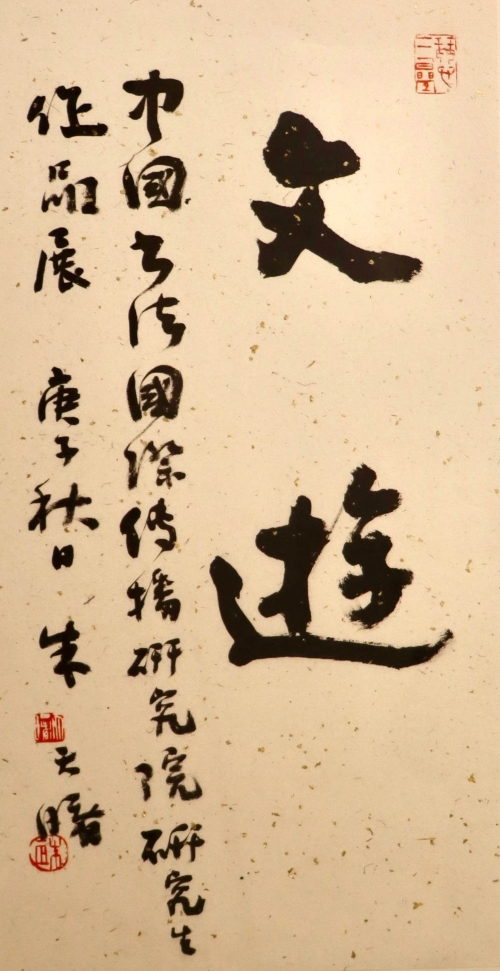 文遊
中國書法國際傳播研究院研究生
作品展 庚子秋日 朱天曙